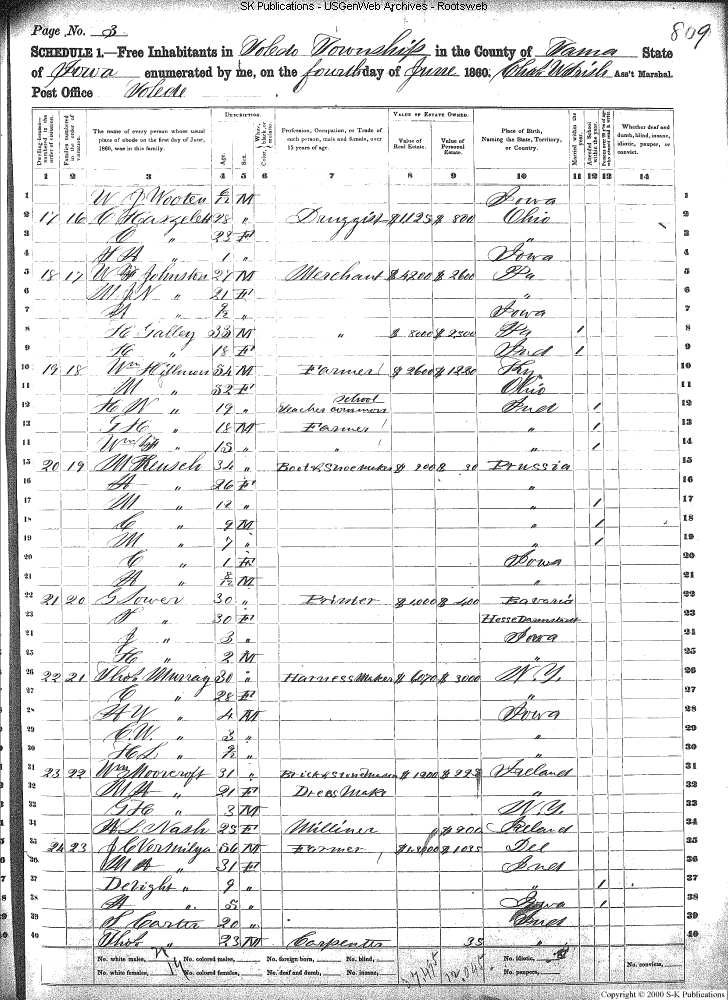 SK Publications - USGenWeb Archives - Rootsweb
Page No. 3
809
SCHEDULE 1.—Free Inhabitants in Toledo Township in the County of Tama State
of Iowa enumerated by me, on the fourth day of June 1860. Ass't Marshal.
Post Office Toledo
DESCRIPTION. VALUE OF ESTATE OWNED.
Dwelling-houses—numbered in the order of visitation. Families numbered in the order of visitation. The name of every person whose usual place of abode on the first day of June, 1860, was in this family. Age. Sex. Color, White, black, or mulatto. Profession, Occupation, or Trade of each person, male and female, over 15 years of age. Value of Real Estate. Value of Personal Estate. Place of Birth, Naming the State, Territory, or Country. Married within the year. Attended School within the year. Whether deaf and dumb, blind, insane, idiotic, pauper, or convict.
1 2 3 4 5 6 7 8 9 10 11 12 13 14
1 W J Wooten M Iowa 1
2 17 16 C 28 " Druggist $1125 $800 Ohio 2
3 C " 23 F " 3
4 " 1 " Iowa 4
5 18 17 W Johnston 27 M Merchant $4200 $2600 Pa 5
6 M J N " 21 F " 6
7 " Iowa 7
8 H Galley 33 M " $8000 $2500 Pa 1 8
9 H " 18 F Ind 1 9
10 19 18 Wm Hillmon 54 M Farmer $2600 $1220 Ky 10
11 M " 52 F Ohio 11
12 H W " 19 " Teacher common school Ind 1 12
13 G H " 18 M Farmer " 1 13
14 Wm " 15 " " " 1 14
15 20 19 M Reusch 34 " Boot & Shoemaker $200 $30 Prussia 15
16 A " 26 F " 16
17 M " 12 " " 1 17
18 C " 9 M " 1 18
19 M " 7 " " 1 19
20 C " 1 F Iowa 20
21 A " M " 21
22 21 20 G Sower 30 " Printer $1000 $400 Bavaria 22
23 " 30 F Hesse Darmstadt 23
24 J " 3 " Iowa 24
25 H " 2 M " 25
26 22 21 Thos Murray 30 " Harness Maker $6070 $3000 N.Y. 26
27 C " 28 F " 27
28 A W " 4 M Iowa 28
29 C. W. " 3 " " 29
30 H L " " " 30
31 23 22 Wm Moorcroft 31 " Brick & Stone Mason $1200 $223 Ireland 31
32 M A " 21 F Dress Maker " 32
33 G H " 3 M N.Y. 33
34 A L Nash 25 F Milliner $200 Ireland 34
35 24 23 J C Vermilya 56 M Farmer $1035 Del 35
36 M A " 31 F Ind 36
37 Deright " 9 " " 1 37
38 A " 5 " Iowa 1 38
39 S Carter 20 " Ind 39
40 Thos " 23 M Carpenter 35 " 40
No. white males, No. colored males, No. foreign born, No. blind, No. idiotic, No. convicts,
No. white females, No. colored females, No. deaf and dumb, No. insane, No. paupers,
Copyright © 2000 S-K Publications